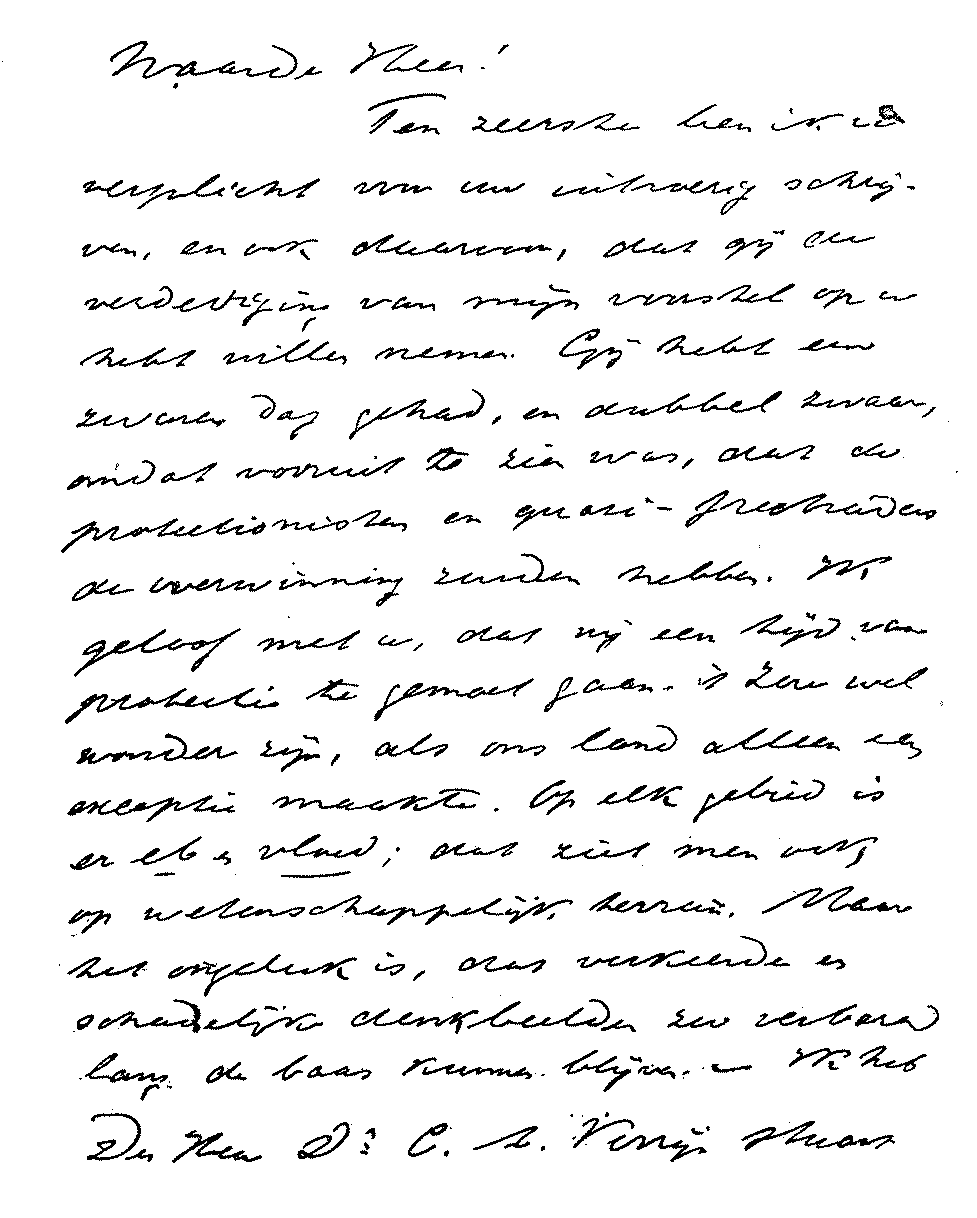 Waarde Heer!
Ten zeerste ben ik u
verplicht voor uw uitvoerig schrij-
ven, en ook daarvoor, dat gij de
verdediging van mijn voorstel op u
hebt willen nemen. Gij hebt een
zwaren dag gehad, en dubbel zwaar,
omdat vooruit te zien was, dat de
protectionisten en quasi-freetraders
de overwinning zouden hebben. Ik
geloof met u, dat wij een tijd van
protectie te gemoet gaan. 't Zou wel
wonder zijn, als ons land alleen een
exceptie maakte. Op elk gebied is
er eb en vloed; dat ziet men ook
op wetenschappelijk terrein. Maar
het ongeluk is, dat verkeerde en
schadelijke denkbeelden zoo verbazend
lang de baas kunnen blijven. — Ik heb
Den Heer Dr. C. A. Verrijn Stuart